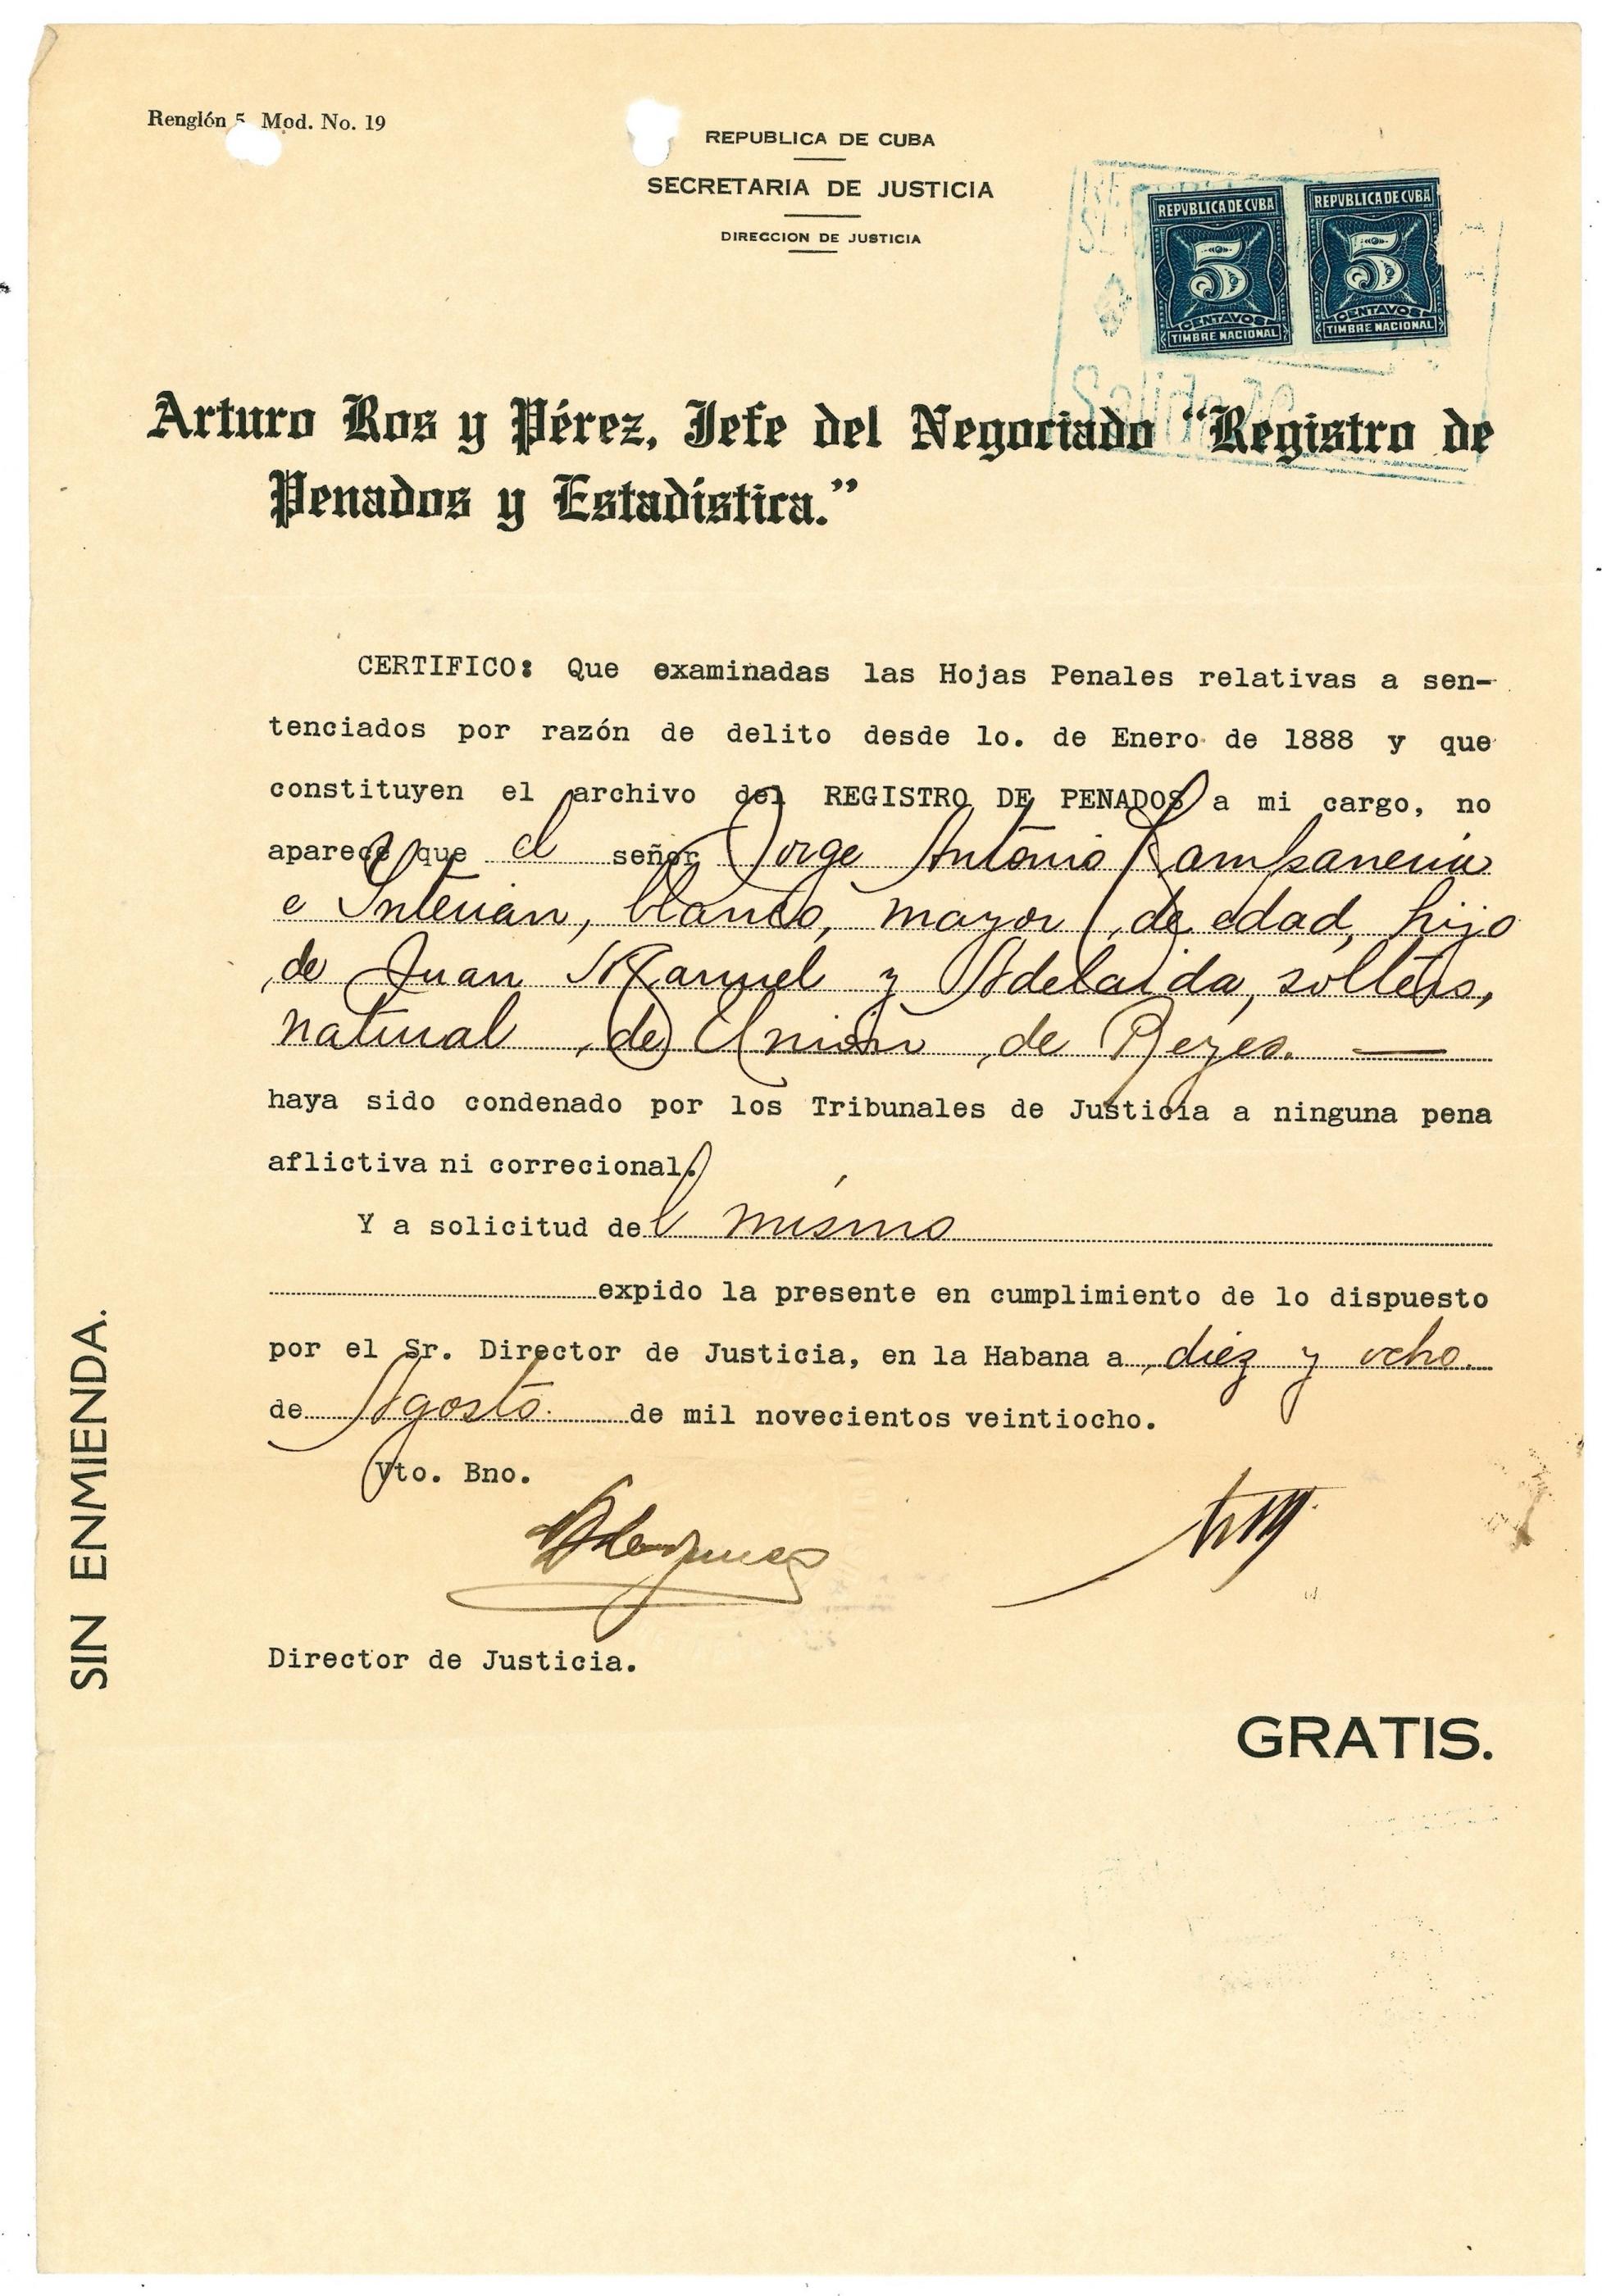 Renglón 5 Mod. No. 19
REPUBLICA DE CUBA
SECRETARIA DE JUSTICIA
DIRECCION DE JUSTICIA
REPVBLICA DE CVBA
5
CENTAVOS
TIMBRE NACIONAL
REPVBLICA DE CVBA
5
CENTAVOS
TIMBRE NACIONAL
Arturo Ros y Pérez, Jefe del Negociado "Registro de
Penados y Estadística."
CERTIFICO: Que examinadas las Hojas Penales relativas a sen-
tenciados por razón de delito desde 1o. de Enero de 1888 y que
constituyen el archivo del REGISTRO DE PENADOS a mi cargo, no
aparece que el señor Jorge Antonio Campaneria
e Interian, blanco, mayor de edad, hijo
de Juan Manuel y Adelaida, soltero,
natural de Unión de Reyes. —
haya sido condenado por los Tribunales de Justicia a ninguna pena
aflictiva ni correcional.
Y a solicitud del mismo
expido la presente en cumplimiento de lo dispuesto
por el Sr. Director de Justicia, en la Habana a diez y ocho
de Agosto de mil novecientos veintiocho.
Vto. Bno.
Director de Justicia.
GRATIS.
SIN ENMIENDA.